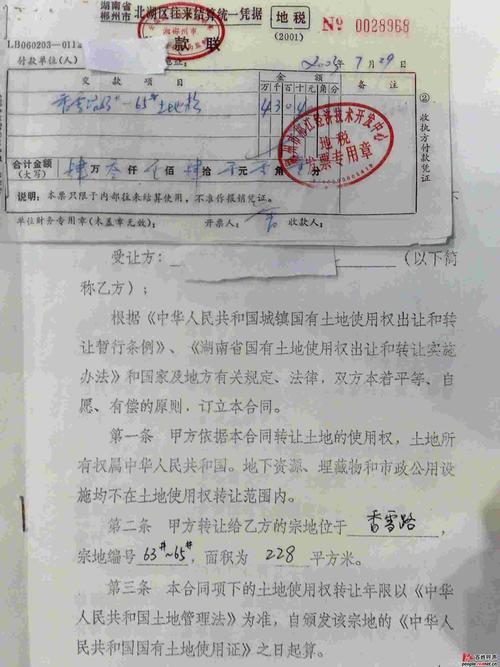 湖南省
郴州市 北湖区往来结算统一凭据 地税
(2001)
№ 0028968
款联
LB060203-011a
付款单位(人)
7月29
交款项目 金额 备注
万千百十元角分
63#-65#土地
合计金额
(大写) 肆万叁仟 佰肆拾 元 角 分
说明:本票只限于内部往来结算使用,不准作报销凭证。
单位财务专用章(未盖章无效): 开票人: 收款人:
②收执方付款凭证
经济技术开发中心
地税
发票专用章
受让方: (以下简
称乙方);
根据《中华人民共和国城镇国有土地使用权出让和转
让暂行条例》、《湖南省国有土地使用权出让和转让实施
办法》和国家及地方有关规定、法律,双方本着平等、自
愿、有偿的原则,订立本合同。
第一条 甲方依据本合同转让土地的使用权,土地所
有权属中华人民共和国。地下资源、埋藏物和市政公用设
施均不在土地使用权转让范围内。
第二条 甲方转让给乙方的宗地位于 香雪路 ,
宗地编号 63#~65# ,面积为 228 平方米。
第三条 本合同项下的土地使用权转让年限以《中华
人民共和国土地管理法》为准,自颁发该宗地的《中华人
民共和国国有土地使用证》之日起算。